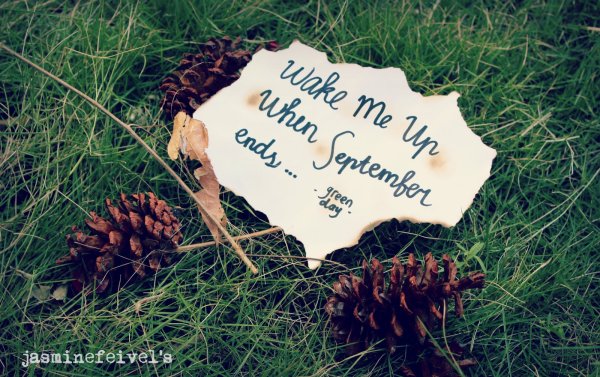 Wake Me Up
When September
ends...
- green
day -
jasminefeivel's